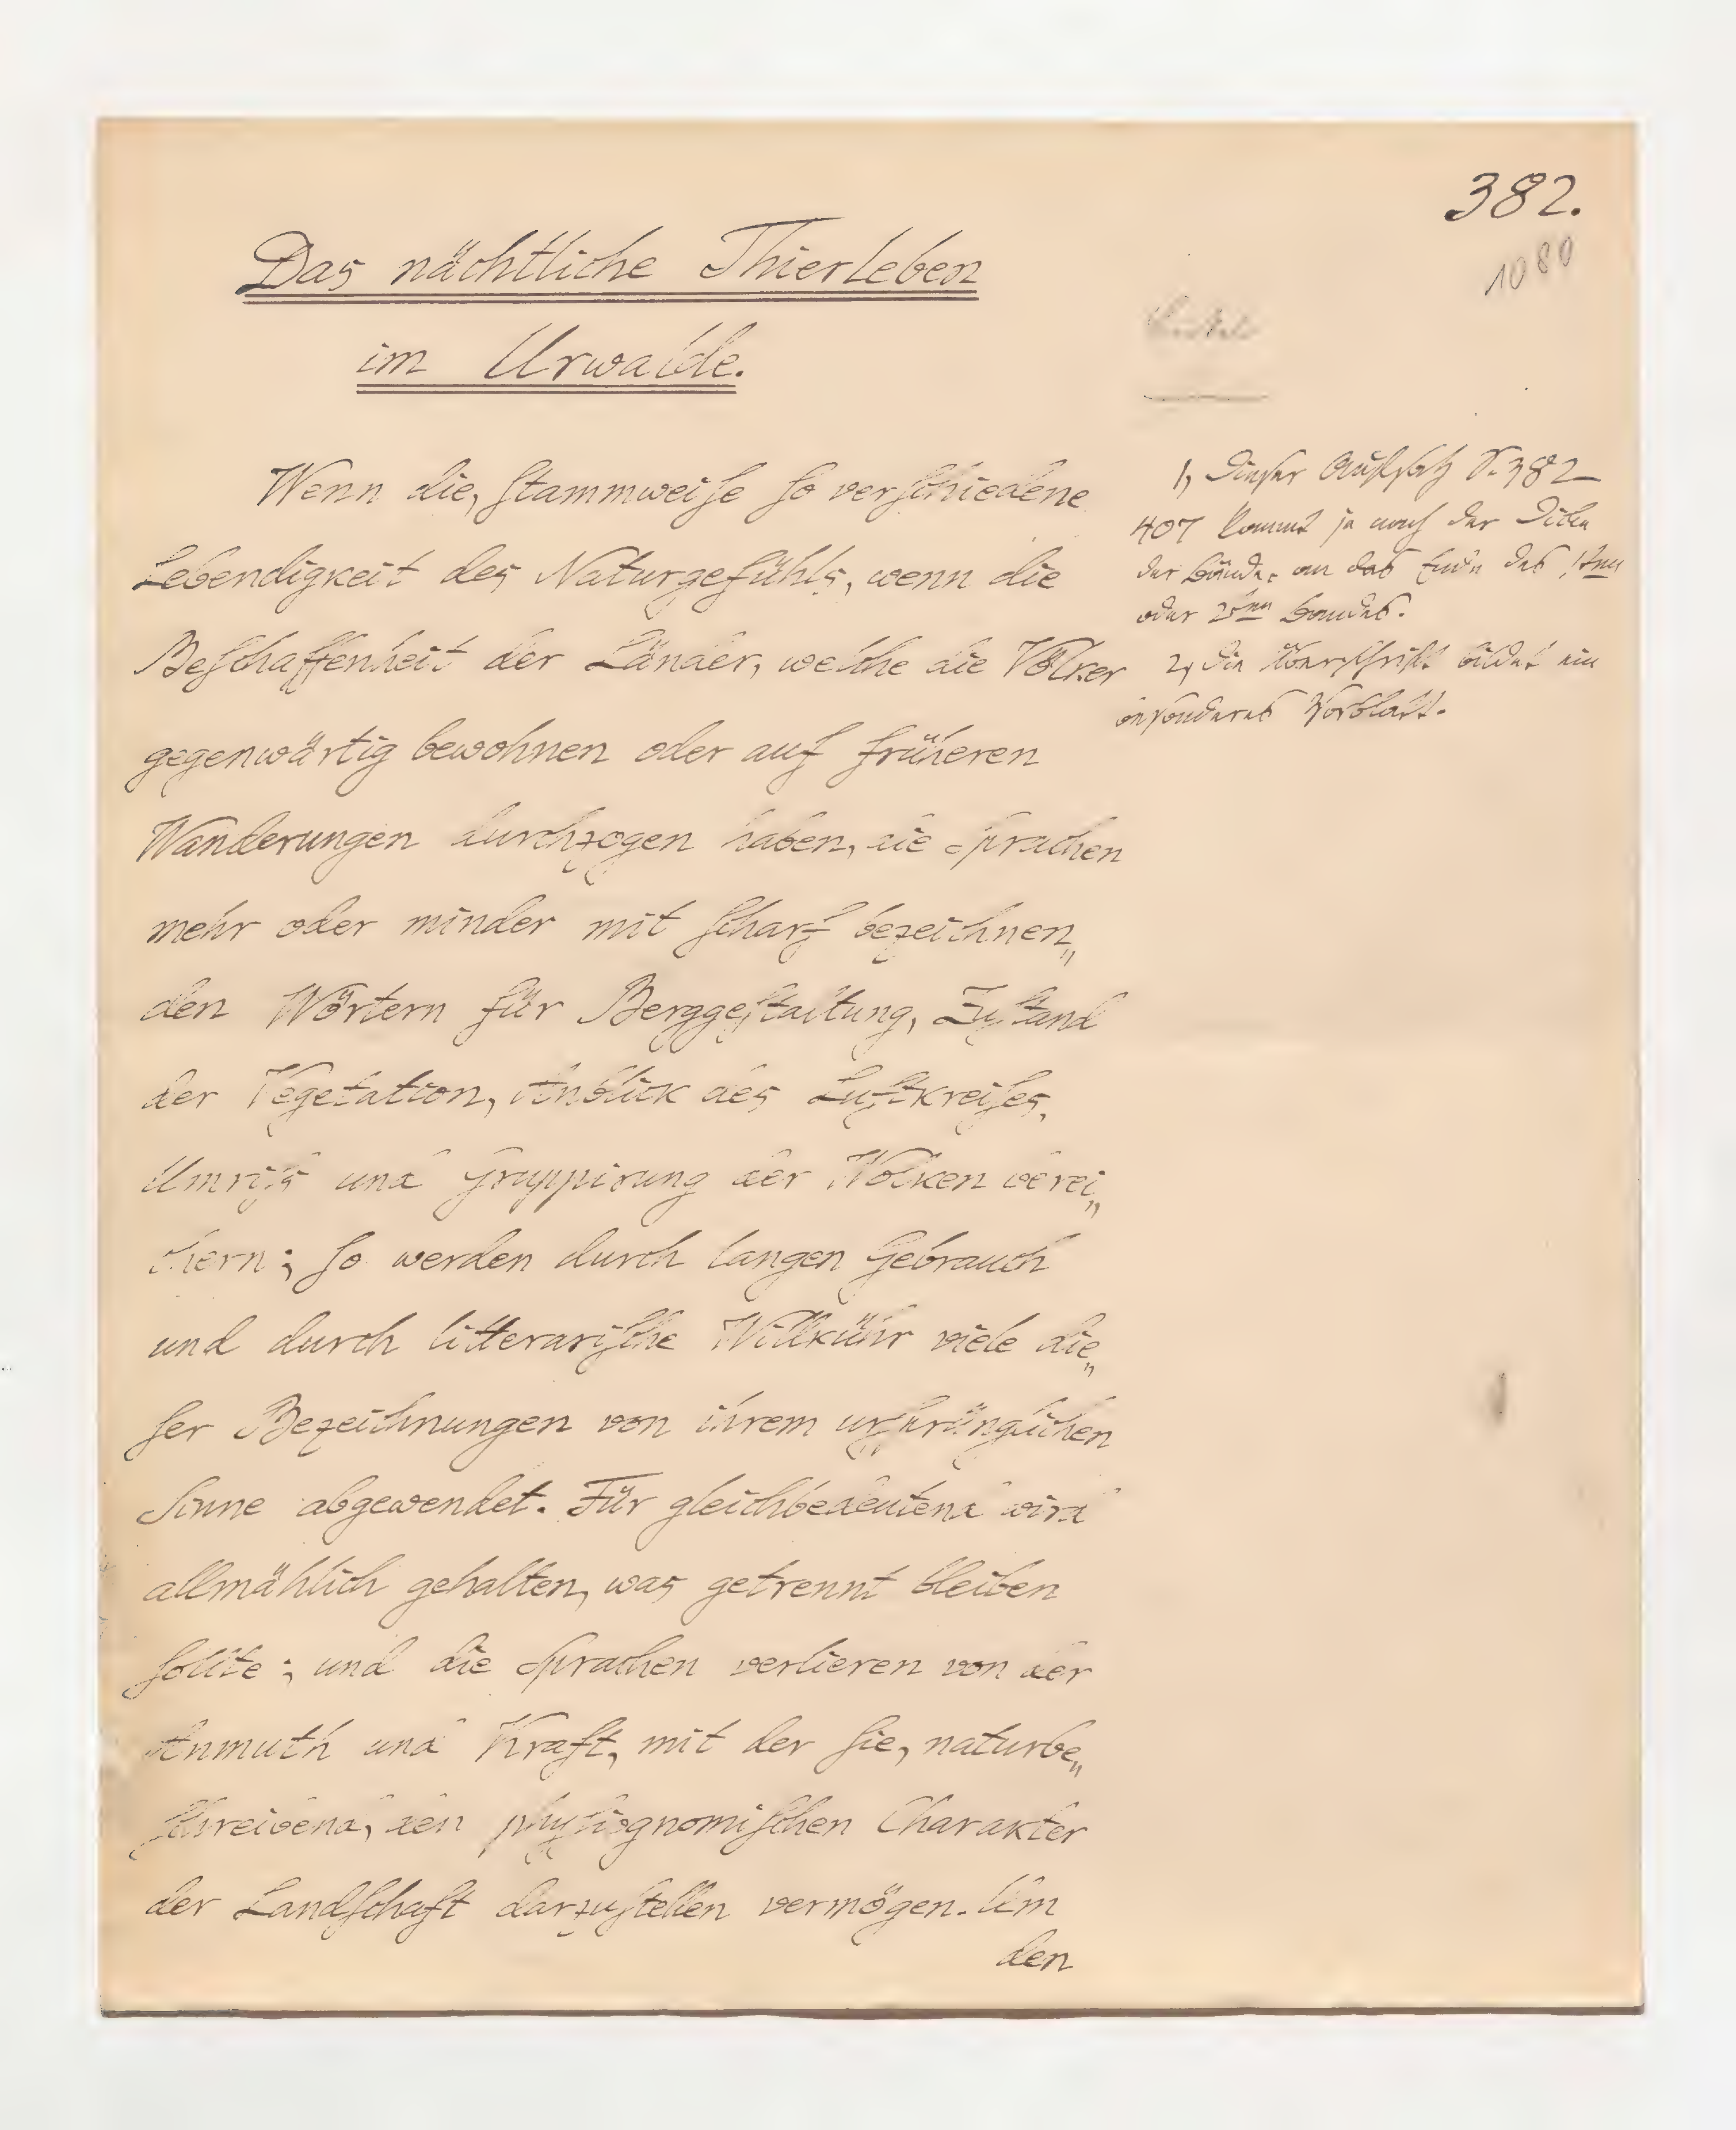 382.
1080
Das nächtliche Thierleben
im Urwalde.
Wenn die, stammweise so verschiedene
Lebendigkeit des Naturgefühls, wenn die
Beschaffenheit der Länder, welche die Völker
gegenwärtig bewohnen oder auf früheren
Wanderungen durchzogen haben, die Sprachen
mehr oder minder mit scharf bezeichnen„
den Wörtern für Berggestaltung, Zustand
der Vegetation, Anblick des Luftkreises,
Umriß und Gruppirung der Wolken berei„
chern; so werden durch langen Gebrauch
und durch litterarische Willkühr viele die„
ser Bezeichnungen von ihrem ursprünglichen
Sinne abgewendet. Für gleichbedeutend wird
allmählich gehalten, was getrennt bleiben
sollte; und die Sprachen verlieren von der
Anmuth und Kraft, mit der sie, naturbe„
schreibend, den physiognomischen Charakter
der Landschaft darzustellen vermögen. Um
den
1, Dieser Aufsatz S. 382–
407 kommt je nach der Dicke
der Bände, an das Ende des 1sten
oder 2ten Bandes.
2, Die Überschrift bildet ein
besonderes Vorblatt.